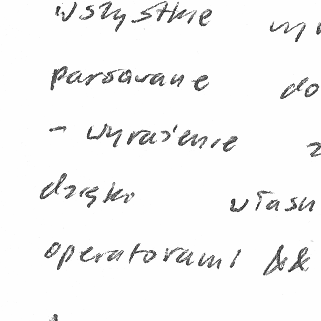 wszystkie wy
parsowane do
- wyrażenie z
dzięki własn
operatorami &&